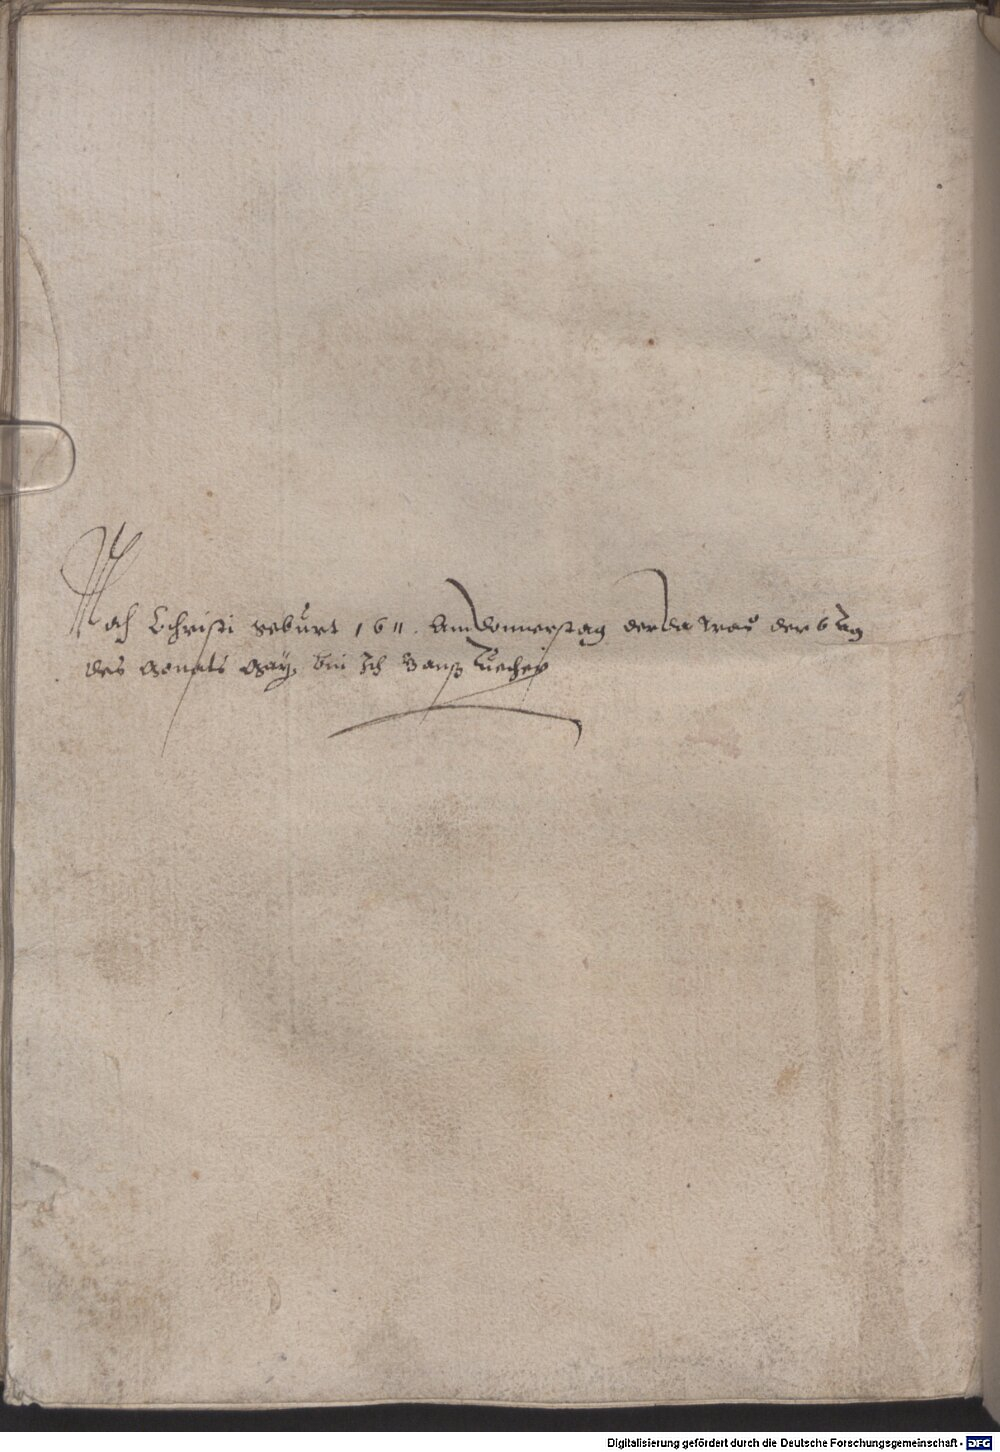 Nach Christi geburt 1611. Am donnerstag der da war der 6 tag
des Monats May. bin Ich Hanß
Digitalisierung gefördert durch die Deutsche Forschungsgemeinschaft - DFG